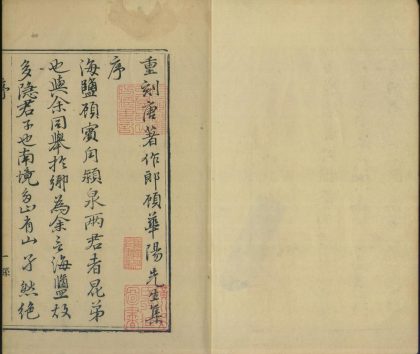 重刻唐著作郎顧華陽先生集
序
海鹽顧賓周潁泉兩君者昆弟
也與余同舉於鄉為余言海鹽故
多隱君子也南境多山有山孑然絕
序
一